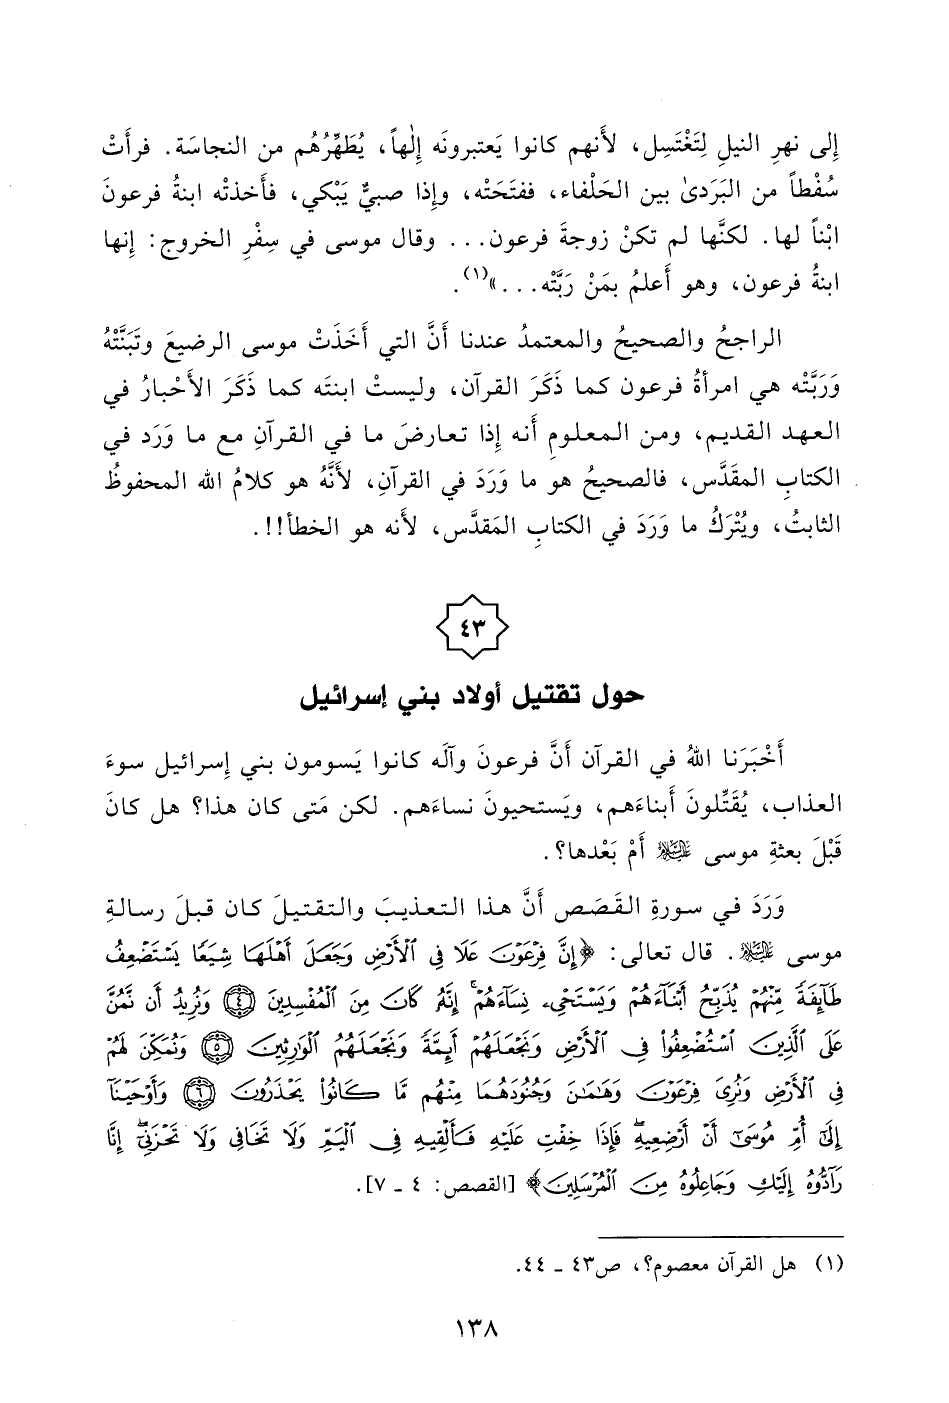 إلى نهرِ النيلِ لِتَغْتَسِل، لأَنهم كانوا يَعتبرونَه إِلٰهاً، يُطَهِّرُهُم من النجاسَة. فرأَتْ
سُفْطاً من البَرَدىٰ بين الحَلْفاء، ففتَحَتْه، وإِذا صبيٌّ يَبْكي، فأَخذتْه ابنةُ فرعونَ
ابْناً لها. لكنَّها لم تكنْ زوجةَ فرعون... وقال موسى في سِفْرِ الخروج: إِنها
ابنةُ فرعون، وهو أَعلمُ بمَنْ رَبَّتْه...»(١).
الراجحُ والصحيحُ والمعتمدُ عندنا أَنَّ التي أَخَذَتْ موسى الرضيعَ وتَبَنَّتْهُ
وَرَبَّتْه هي امرأةُ فرعون كما ذَكَرَ القرآن، وليستْ ابنتَه كما ذَكَرَ الأَحْبارُ في
العهد القديم، ومن المعلومِ أَنه إِذا تعارضَ ما في القرآنِ مع ما وَرَد في
الكتابِ المقَدَّس، فالصحيحُ هو ما وَرَدَ في القرآنِ، لأَنَّهُ هو كلامُ الله المحفوظُ
الثابتُ، ويُتْرَكُ ما وَرَدَ في الكتابِ المَقدَّس، لأَنه هو الخطأ!!.
٤٣
حول تقتيل أولاد بني إسرائيل
أَخْبَرَنا اللهُ في القرآن أَنَّ فرعونَ وآلَه كانوا يَسومون بني إِسرائيل سوءَ
العذاب، يُقَتِّلونَ أَبناءَهم، ويَستحيونَ نساءَهم. لكن مَتى كان هذا؟ هل كانَ
قَبْلَ بعثةِ موسى عليه السلام أَمْ بَعْدها؟.
وَرَدَ في سورةِ القَصَص أَنَّ هذا التعذيبَ والتقتيلَ كان قبلَ رسالةِ
موسى عليه السلام. قال تعالى: ﴿إِنَّ فِرْعَوْنَ عَلَا فِي ٱلْأَرْضِ وَجَعَلَ أَهْلَهَا شِيَعًا يَسْتَضْعِفُ
طَآئِفَةً مِّنْهُمْ يُذَبِّحُ أَبْنَآءَهُمْ وَيَسْتَحْىِۦ نِسَآءَهُمْ ۚ إِنَّهُۥ كَانَ مِنَ ٱلْمُفْسِدِينَ ﴿٤﴾ وَنُرِيدُ أَن نَّمُنَّ
عَلَى ٱلَّذِينَ ٱسْتُضْعِفُوا۟ فِى ٱلْأَرْضِ وَنَجْعَلَهُمْ أَئِمَّةً وَنَجْعَلَهُمُ ٱلْوَٰرِثِينَ ﴿٥﴾ وَنُمَكِّنَ لَهُمْ
فِى ٱلْأَرْضِ وَنُرِىَ فِرْعَوْنَ وَهَـٰمَـٰنَ وَجُنُودَهُمَا مِنْهُم مَّا كَانُوا۟ يَحْذَرُونَ ﴿٦﴾ وَأَوْحَيْنَآ
إِلَىٰٓ أُمِّ مُوسَىٰٓ أَنْ أَرْضِعِيهِ ۖ فَإِذَا خِفْتِ عَلَيْهِ فَأَلْقِيهِ فِى ٱلْيَمِّ وَلَا تَخَافِى وَلَا تَحْزَنِىٓ ۖ إِنَّا
رَآدُّوهُ إِلَيْكِ وَجَاعِلُوهُ مِنَ ٱلْمُرْسَلِينَ﴾ [القصص: ٤ ـ ٧].
(١) هل القرآن معصوم؟، ص٤٣ ـ ٤٤.
١٣٨